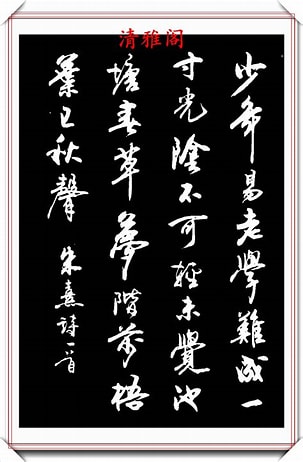 清雅阁
少年易老學難成一
寸光陰不可輕未覺池
塘春草夢階前梧
葉已秋聲 朱熹詩一首